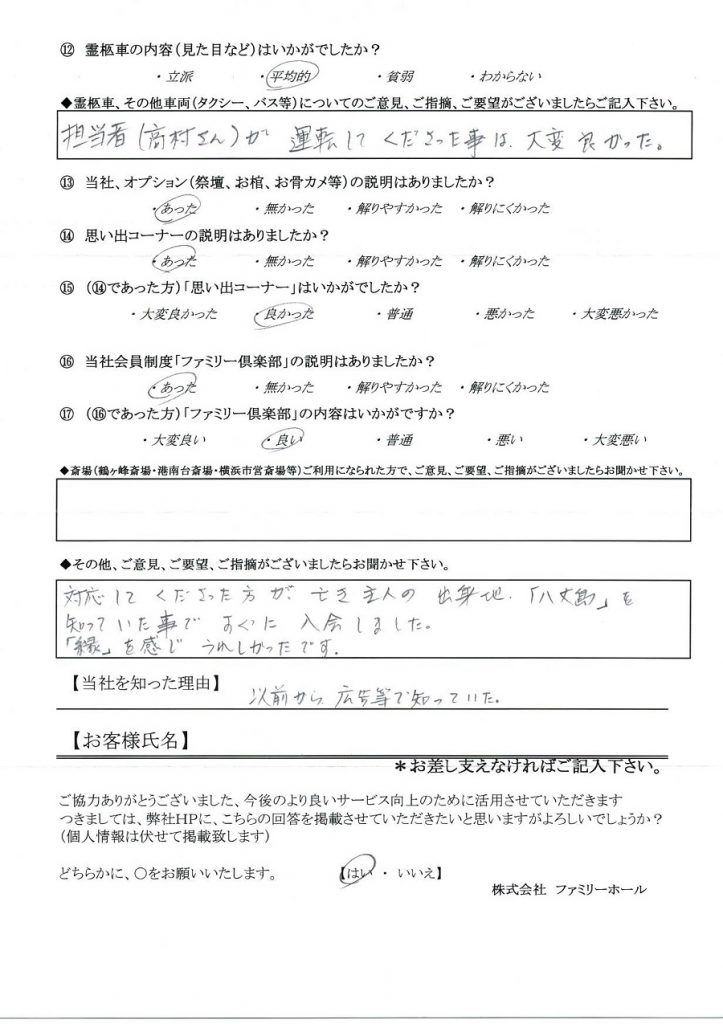 ⑫ 霊柩車の内容（見た目など）はいかがでしたか？
・立派 ・平均的 ・貧弱 ・わからない
◆霊柩車、その他車両（タクシー、バス等）についてのご意見、ご指摘、ご要望がございましたらご記入下さい。
担当者（高村さん）が 運転して くださった事は、大変 良かった。
⑬ 当社、オプション（祭壇、お棺、お骨カメ等）の説明はありましたか？
・あった ・無かった ・解りやすかった ・解りにくかった
⑭ 思い出コーナーの説明はありましたか？
・あった ・無かった ・解りやすかった ・解りにくかった
⑮ （⑭であった方）「思い出コーナー」はいかがでしたか？
・大変良かった ・良かった ・普通 ・悪かった ・大変悪かった
⑯ 当社会員制度「ファミリー倶楽部」の説明はありましたか？
・あった ・無かった ・解りやすかった ・解りにくかった
⑰ （⑯であった方）「ファミリー倶楽部」の内容はいかがですか？
・大変良い ・良い ・普通 ・悪い ・大変悪い
◆斎場（鶴ヶ峰斎場・港南台斎場・横浜市営斎場等）ご利用になられた方で、ご意見、ご要望、ご指摘がございましたらお聞かせ下さい。
◆その他、ご意見、ご要望、ご指摘がございましたらお聞かせ下さい。
対応して くださった 方が、亡き 主人の 出身地、「八丈島」を
知って いた 事で すぐに 入会 しました。
「縁」を 感じ うれしかったです.
【当社を知った理由】 以前から 広告等で知っていた。
【お客様氏名】
＊お差し支えなければご記入下さい。
ご協力ありがとうございました、今後のより良いサービス向上のために活用させていただきます
つきましては、弊社HPに、こちらの回答を掲載させていただきたいと思いますがよろしいでしょうか？
（個人情報は伏せて掲載致します）
どちらかに、〇をお願いいたします。 【はい ・ いいえ】
株式会社 ファミリーホール